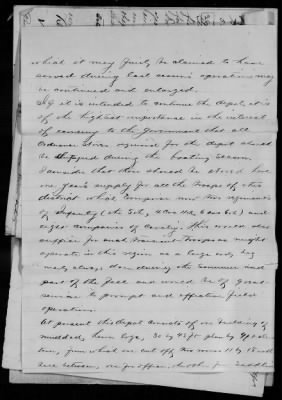 what it may fairly be claimed to have
served during last season's operations may
be continued and enlarged.
If it is intended to continue the depot, it is
of the highest importance in the interest
of economy to the Government that all
Ordnance Stores required for the depot should
be shipped during the boating season.
I consider that there should be stored here
one year's supply for all the troops of this
district which comprise now two regiments
of Infantry (the 5th, & Cos. of 6 and 7th) and
eight companies of Cavalry. This would also
suffice for such transient troops as might
operate in this region as a large body
nearly always does during the summer and
part of the fall and would be of great
service to prompt and efficient field
operations.
At present this depot consists of one building of
mudded, hewn logs, 30 by 45 ft plan by 9
from which we cut off two rooms 11 by 18
for office,